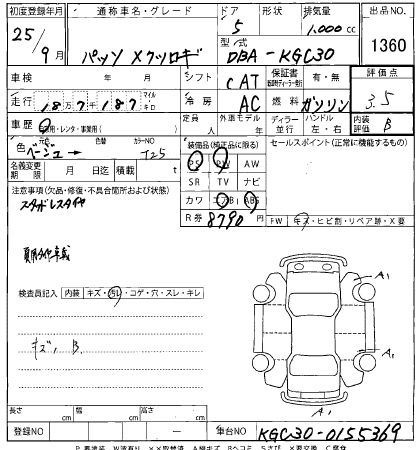 初度登録年月 通称車名・グレード ドア 形状 排気量 出品NO.
25/9月 パッソ Xクツロギ 5 1,000 cc 1360
型式 DBA-KGC30
車検 年 月 シフト CAT 保証書 有・無 評価点
走行 18万7千187 マイル キロ 冷房 AC 燃料 ガソリン 3.5
車歴 自家用・レンタ・事業用( ) 定員 人 外車モデル 年 ディーラー 並行 ハンドル 左・右 内装評価 B
色 ベージュ 色替 カラーNO T25 装備品(純正品に限る) セールスポイント(正常に機能するもの)
PS PW AW
名義変更期限 月 日迄 積載 t SR TV ナビ
注意事項(欠品・修復・不具合箇所および状態) カワ エアB ABS
スタッドレスタイヤ R券 8790
FW キズ・ヒビ割・リペア跡・X要
夏用タイヤ車載
検査員記入 内装 キズ・汚レ・コゲ・穴・スレ・キレ
A1
キズ、B.
A1
長さ cm 幅 cm 高さ cm
A1
登録NO 車台NO KGC30-0155369